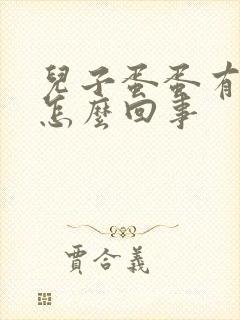 兒子蛋蛋有
怎麼回事
賈合義